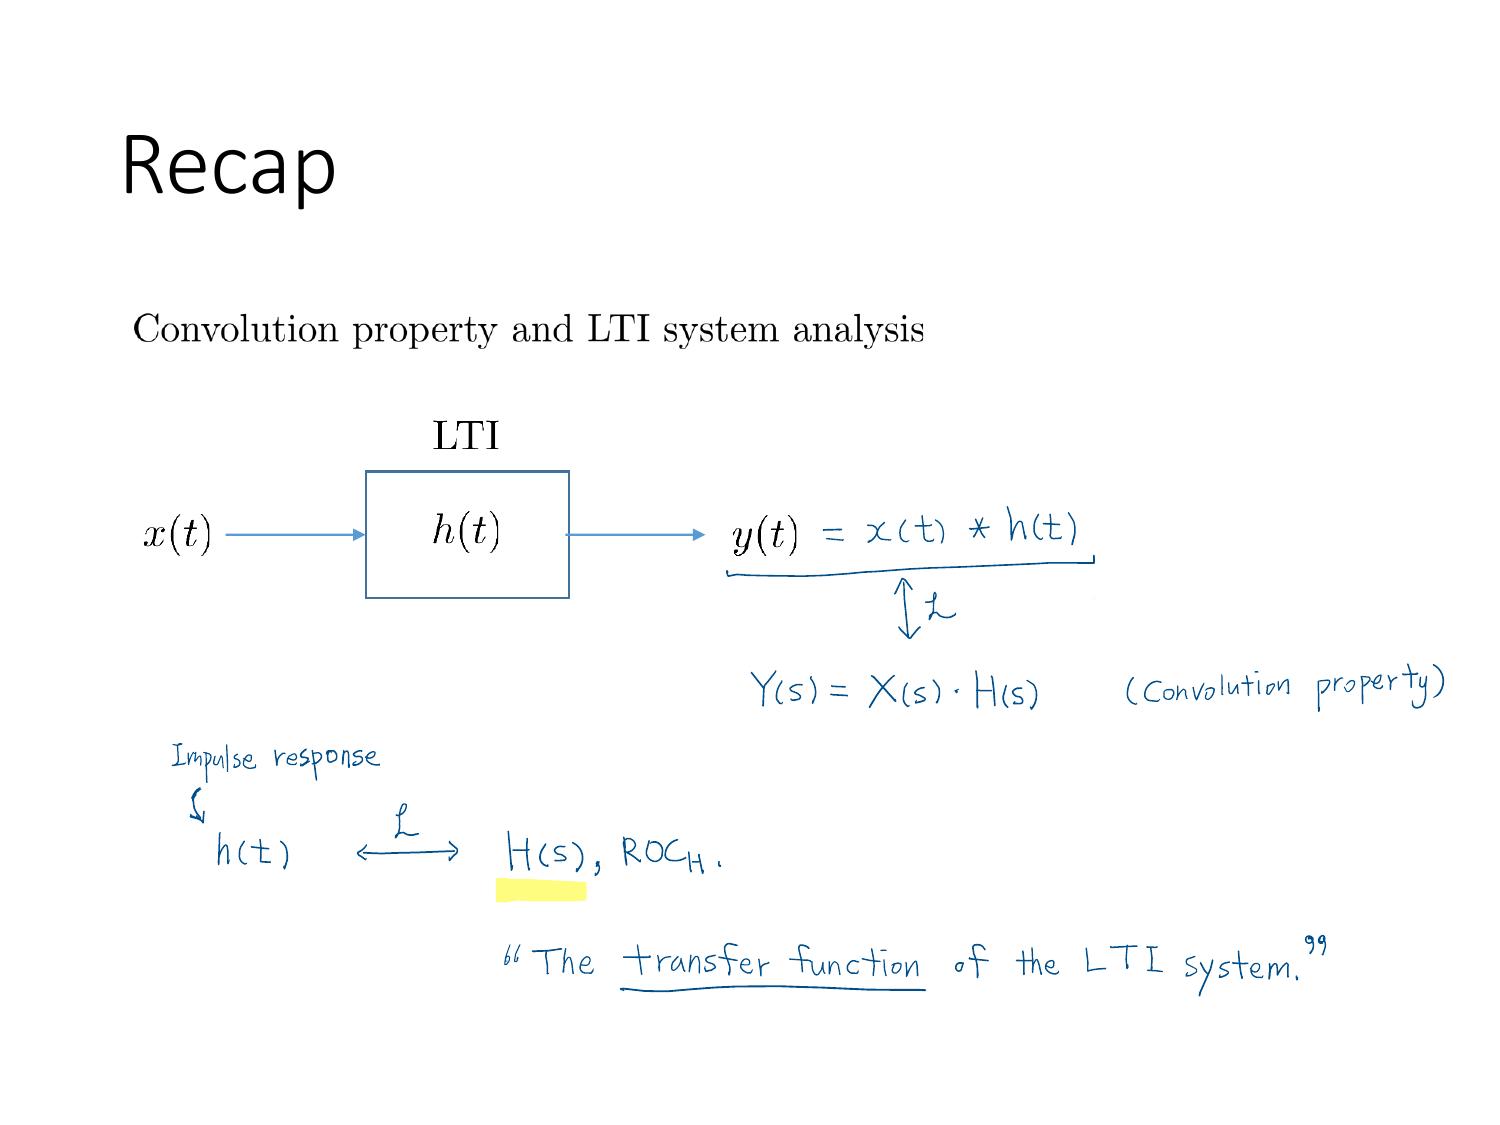 Recap
Convolution property and LTI system analysis
LTI
x(t) h(t) y(t) = x(t) * h(t)
ℒ
Y(s) = X(s) · H(s) (Convolution property)
Impulse response
ℒ
h(t) H(s), ROC_H.
“The transfer function of the LTI system.”